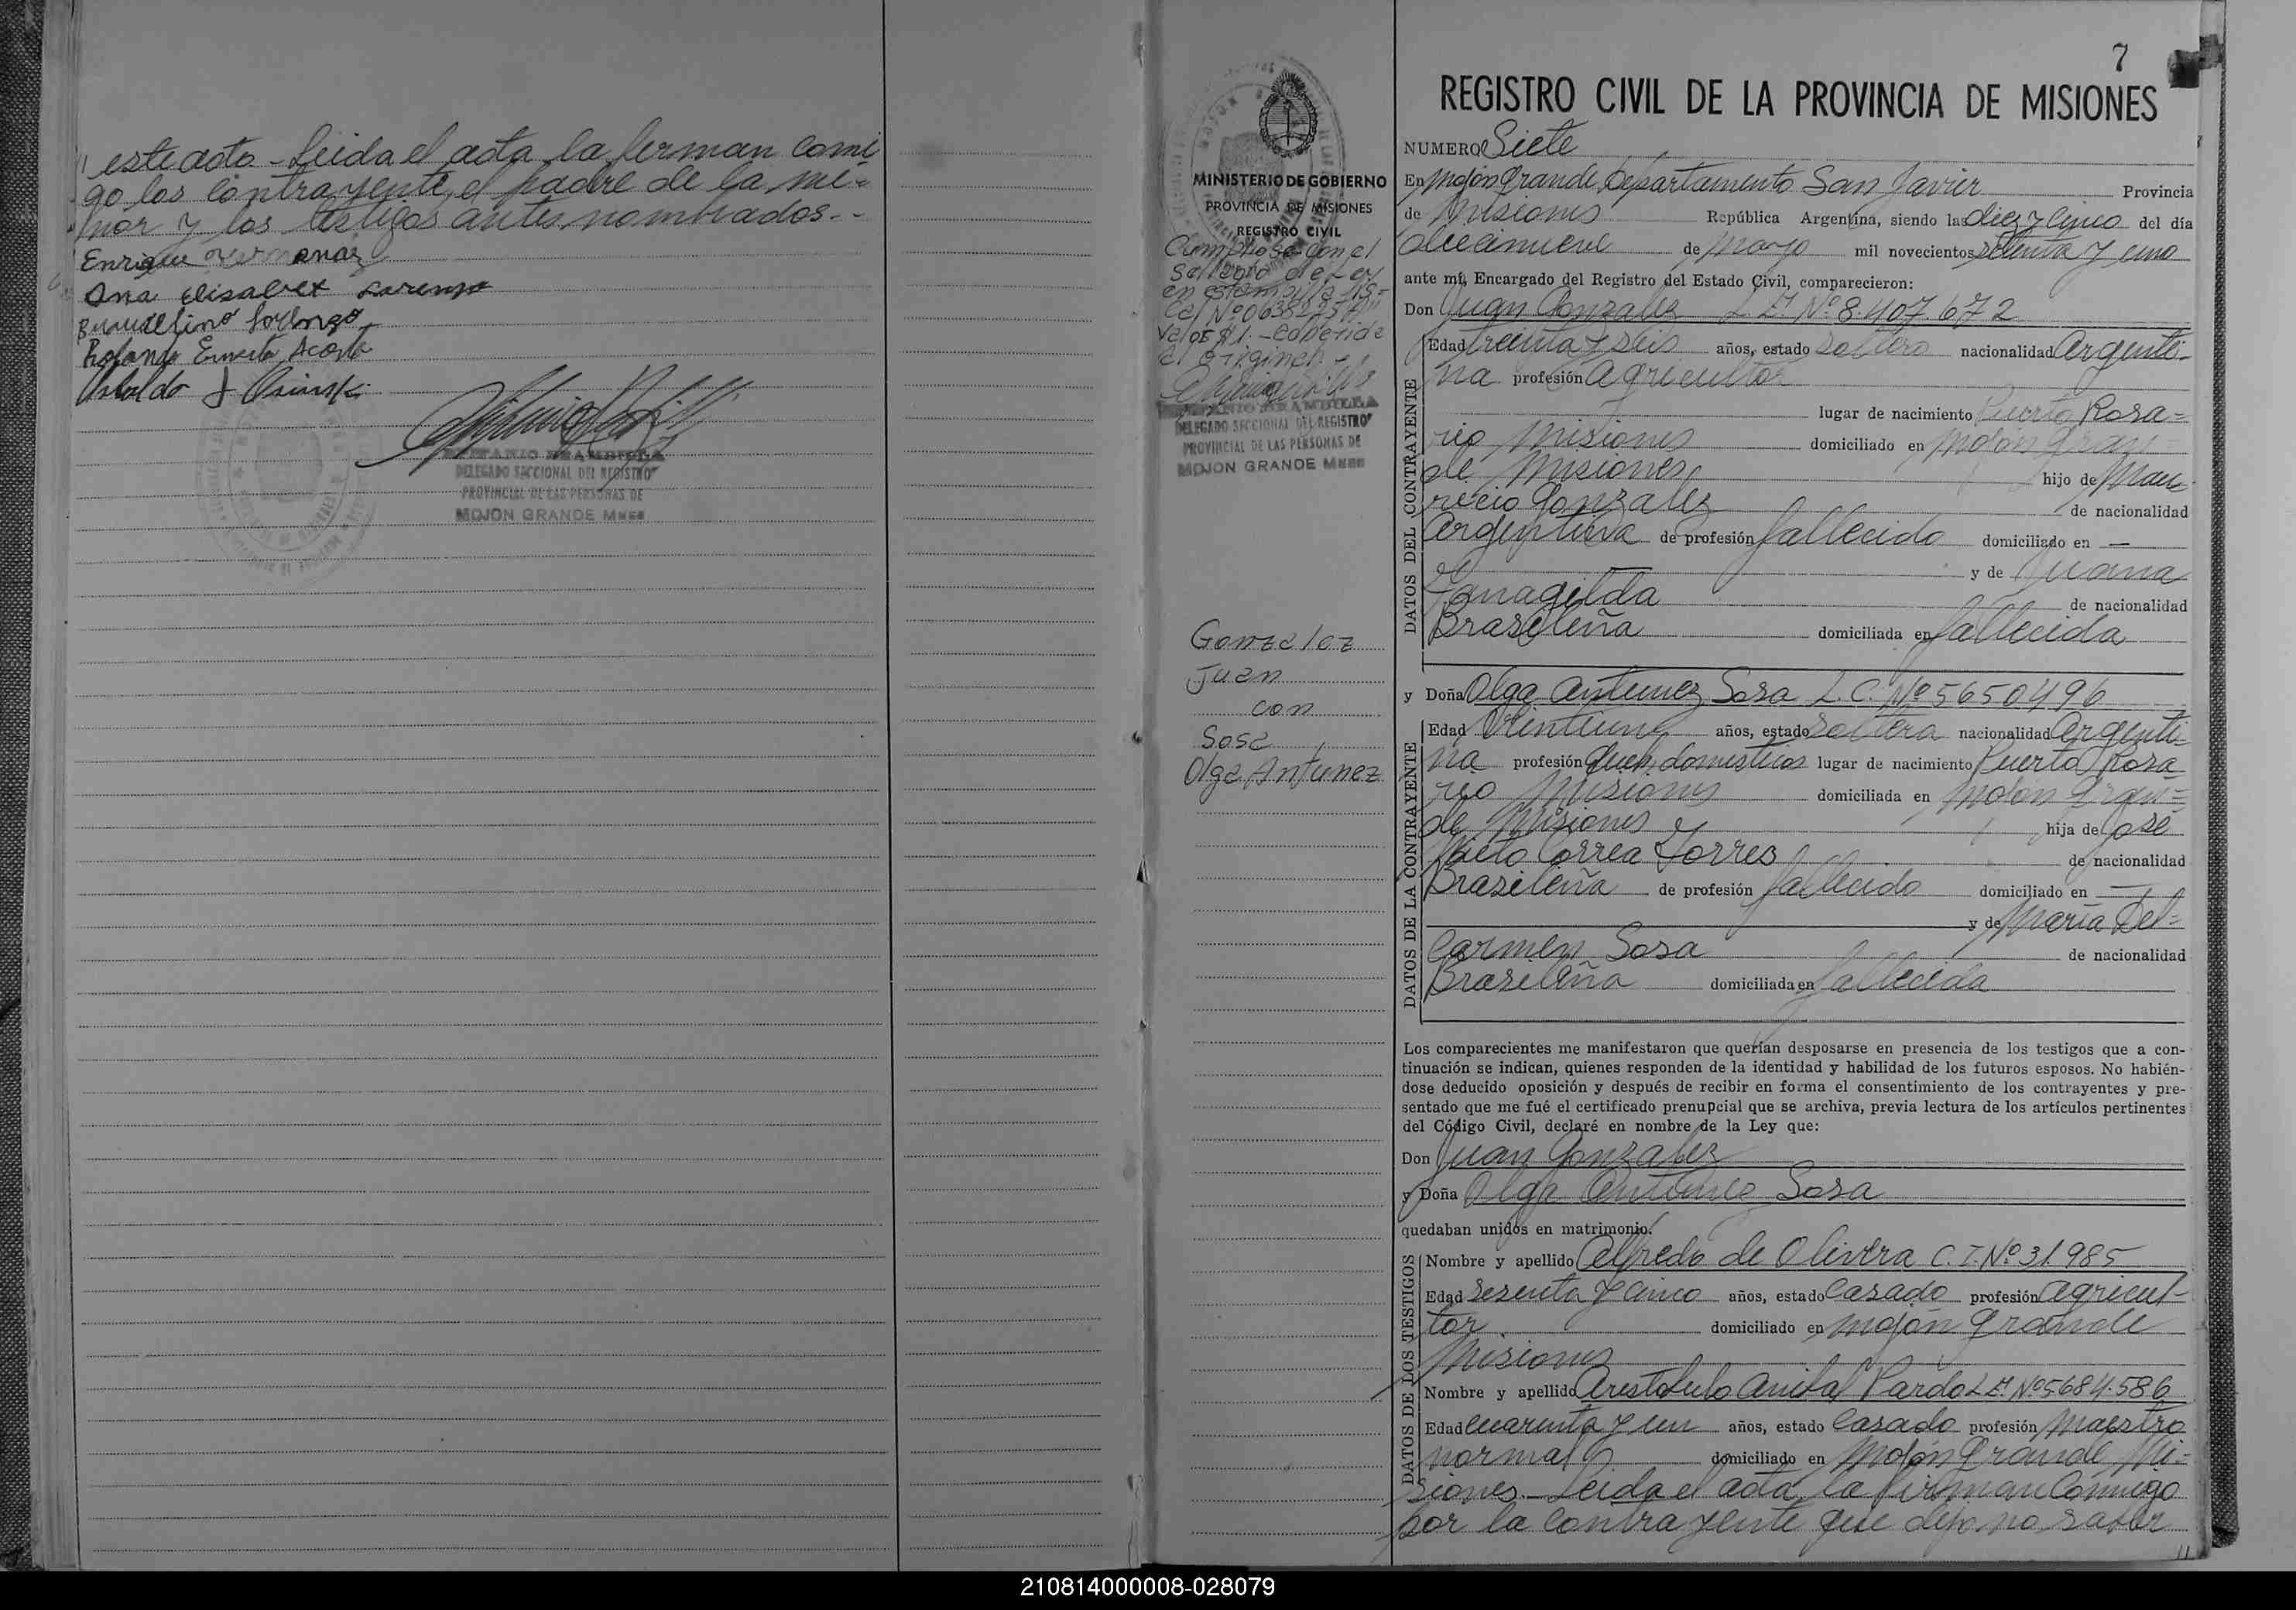 este acto - Leida el acta la firman conmi
go los contrayente, el padre de la me-
nor y los testigos antes nombrados.-
Enrique
Ana Elisabet Lorenzo
Lorenzo
Rolando Ernesto Acosta
DELEGADO SECCIONAL DEL REGISTRO
PROVINCIAL DE LAS PERSONAS DE
MOJON GRANDE Mnes
MINISTERIO DE GOBIERNO
PROVINCIA DE MISIONES
REGISTRO CIVIL
Cumpliose con el
sellado de Ley
en estampilla fis-
cal Nº
valor $1.-
el original.-
DELEGADO SECCIONAL DEL REGISTRO
PROVINCIAL DE LAS PERSONAS DE
MOJON GRANDE Mnes
Gonzalez
Juan
con
Sosa
Olga Antunez
7
REGISTRO CIVIL DE LA PROVINCIA DE MISIONES
NUMERO Siete
En Mojón Grande Departamento San Javier Provincia
de Misiones República Argentina, siendo las diez y cinco del día
diecinueve de Mayo mil novecientos setenta y uno
ante mí, Encargado del Registro del Estado Civil, comparecieron:
Don Juan Gonzalez L.E. Nº 8.407.672
DATOS DEL CONTRAYENTE
Edad treinta y seis años, estado soltero nacionalidad Argenti-
na profesión Agricultor
lugar de nacimiento Puerto Rosa=
rio Misiones domiciliado en Mojón Gran
de Misiones hijo de Mau
ricio Gonzalez de nacionalidad
Argentina de profesión fallecido domiciliado en —
y de Juana
de nacionalidad
Brasileña domiciliada en fallecida
y Doña Olga Antunez Sosa L.C. Nº 5650496
DATOS DE LA CONTRAYENTE
Edad Veintiun años, estado soltera nacionalidad Argenti-
na profesión Queh. domesticos lugar de nacimiento Puerto Rosa
rio Misiones domiciliada en Mojón Gran=
de Misiones hija de José
Correa Torres de nacionalidad
Brasileña de profesión fallecido domiciliado en —
y de María Del=
Carmen Sosa de nacionalidad
Brasileña domiciliada en fallecida
Los comparecientes me manifestaron que querían desposarse en presencia de los testigos que a con-
tinuación se indican, quienes responden de la identidad y habilidad de los futuros esposos. No habién-
dose deducido oposición y después de recibir en forma el consentimiento de los contrayentes y pre-
sentado que me fué el certificado prenupcial que se archiva, previa lectura de los artículos pertinentes
del Código Civil, declaré en nombre de la Ley que:
Don Juan Gonzalez
y Doña Olga Antunez Sosa
quedaban unidos en matrimonio.
DATOS DE LOS TESTIGOS
Nombre y apellido Alfredo de Olivera C.I. Nº 31985
Edad sesenta y cinco años, estado Casado profesión Agricul-
tor. domiciliado en Mojón Grande
Misiones
Nombre y apellido Aristobulo Anibal Pardo L.E. Nº 5.684.586
Edad cuarenta y un años, estado Casado profesión Maestro
normal domiciliado en Mojón Grande Mi=
siones.- Leida el acta, la firman Conmigo
por la contrayente que dijo no saber
210814000008-028079